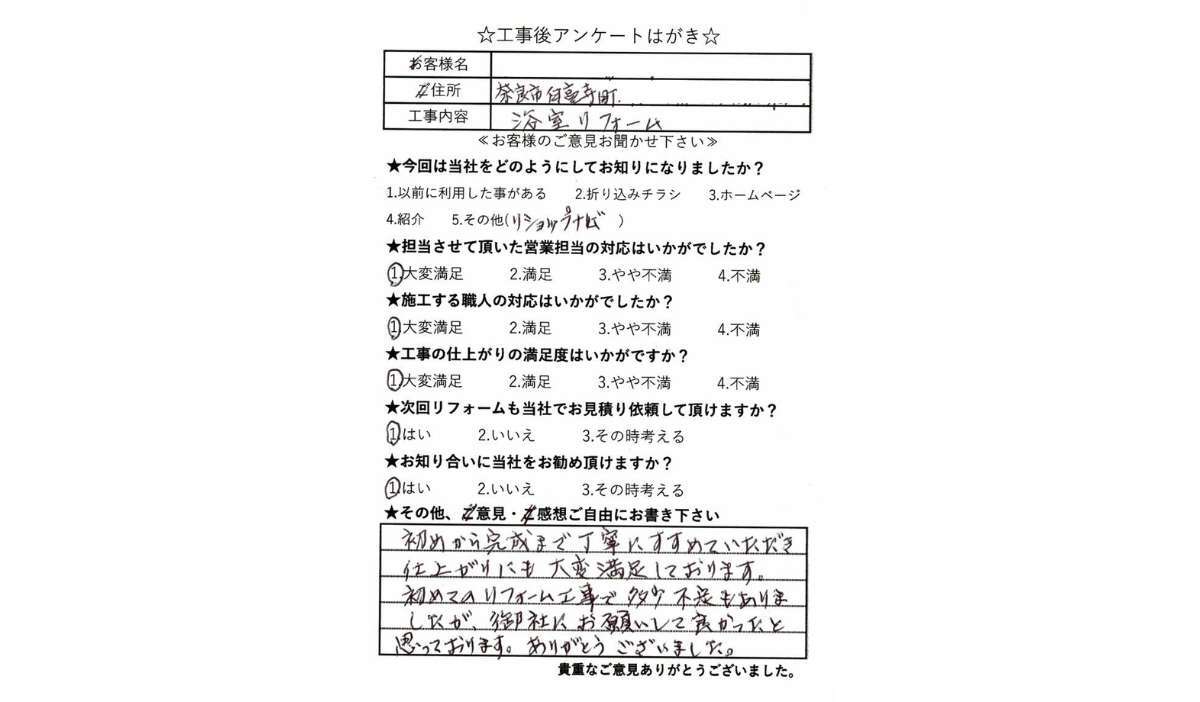 ☆工事後アンケートはがき☆
お客様名
ご住所 奈良市白毫寺町
工事内容 浴室リフォーム
≪お客様のご意見お聞かせ下さい≫
★今回は当社をどのようにしてお知りになりましたか？
1.以前に利用した事がある 2.折り込みチラシ 3.ホームページ
4.紹介 5.その他(リショップナビ )
★担当させて頂いた営業担当の対応はいかがでしたか？
1.大変満足 2.満足 3.やや不満 4.不満
★施工する職人の対応はいかがでしたか？
1.大変満足 2.満足 3.やや不満 4.不満
★工事の仕上がりの満足度はいかがですか？
1.大変満足 2.満足 3.やや不満 4.不満
★次回リフォームも当社でお見積り依頼して頂けますか？
1.はい 2.いいえ 3.その時考える
★お知り合いに当社をお勧め頂けますか？
1.はい 2.いいえ 3.その時考える
★その他、ご意見・ご感想ご自由にお書き下さい
初めから完成まで丁寧にすすめていただき
仕上がりにも大変満足しております。
初めてのリフォーム工事で多少不足もありま
したが、御社にお願いして良かったと
思っております。ありがとうございました。
貴重なご意見ありがとうございました。